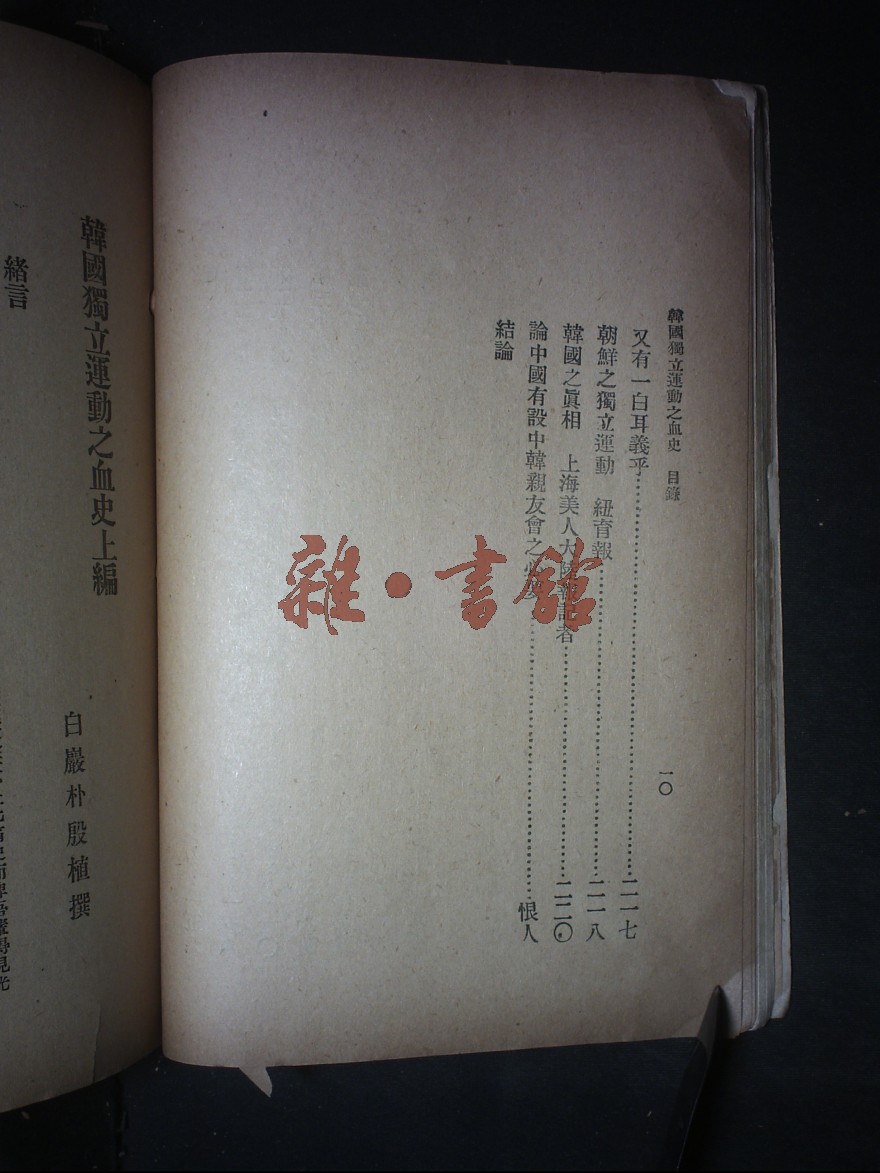 韓國獨立運動之血史 目錄
一〇
又有一白耳義乎……二一七
朝鮮之獨立運動 紐育報……二一八
韓國之眞相 上海美人大陸報記者……二二〇
論中國有設中韓親友會之必要……恨人
結論
韓國獨立運動之血史上編
白巖朴殷植撰
緒言
雜·書館